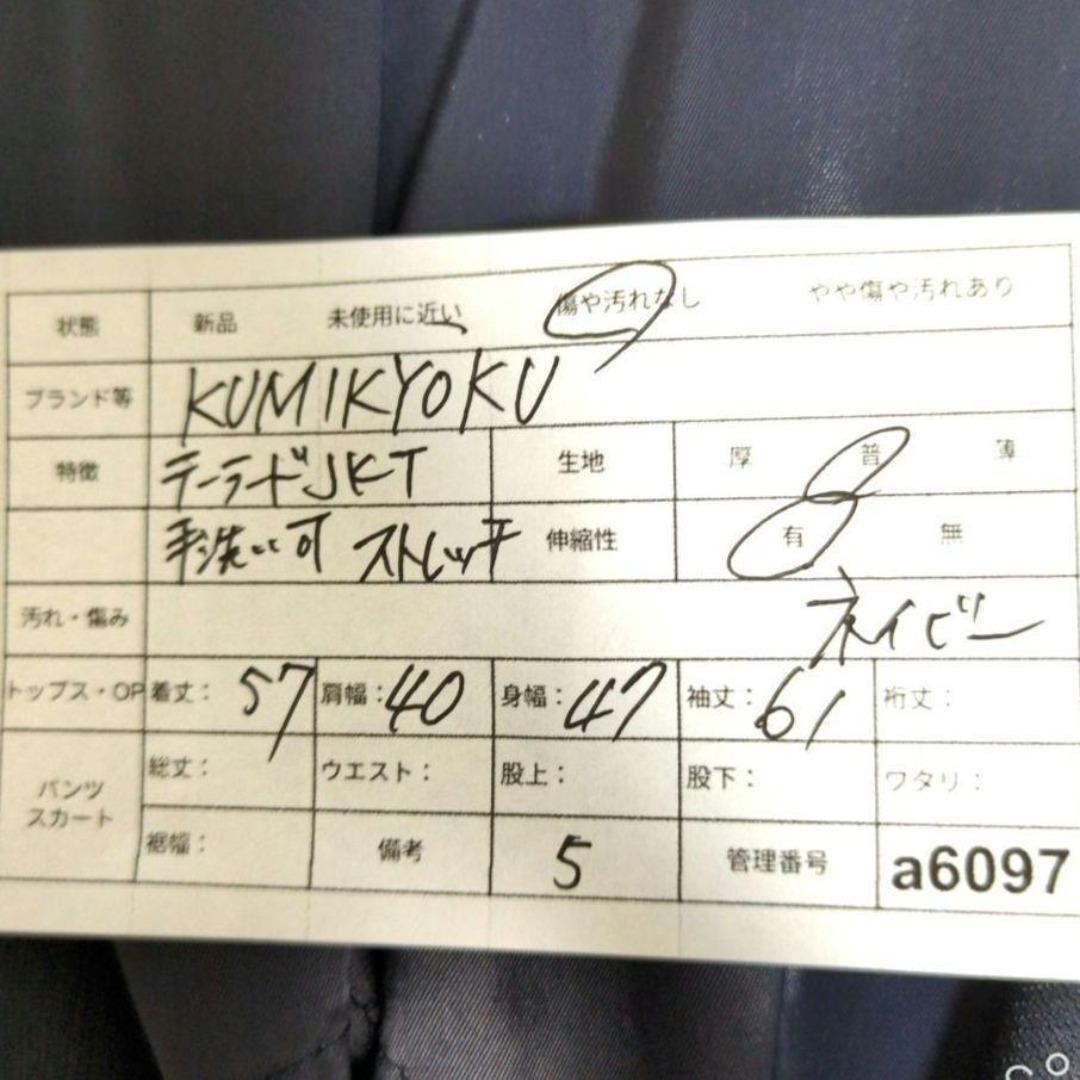 状態 新品 未使用に近い 傷や汚れなし やや傷や汚れあり
ブランド等 KUMIKYOKU
特徴 テーラードJKT 生地 厚 普 薄
手洗い可 ストレッチ 伸縮性 有 無
汚れ・傷み ネイビー
トップス・OP 着丈: 57 肩幅: 40 身幅: 47 袖丈: 61 裄丈:
パンツ スカート 総丈: ウエスト: 股上: 股下: ワタリ:
裾幅: 備考 5 管理番号 a6097